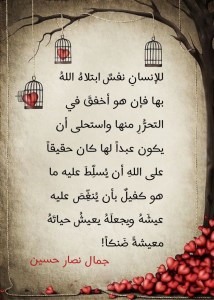 للإنسانِ نفسٌ ابتلاهُ اللهُ
بها فإن هو أخفقَ في
التحرُّرِ منها واستحلى أن
يكون عبداً لها كان حقيقاً
على اللهِ أن يُسلِّطَ عليه ما
هو كفيلٌ بأن يُنغِّصَ عليه
عيشَهُ ويجعلَهُ يعيشُ حياتَهُ
معيشةً ضَنكاً!
جمال نصار حسين